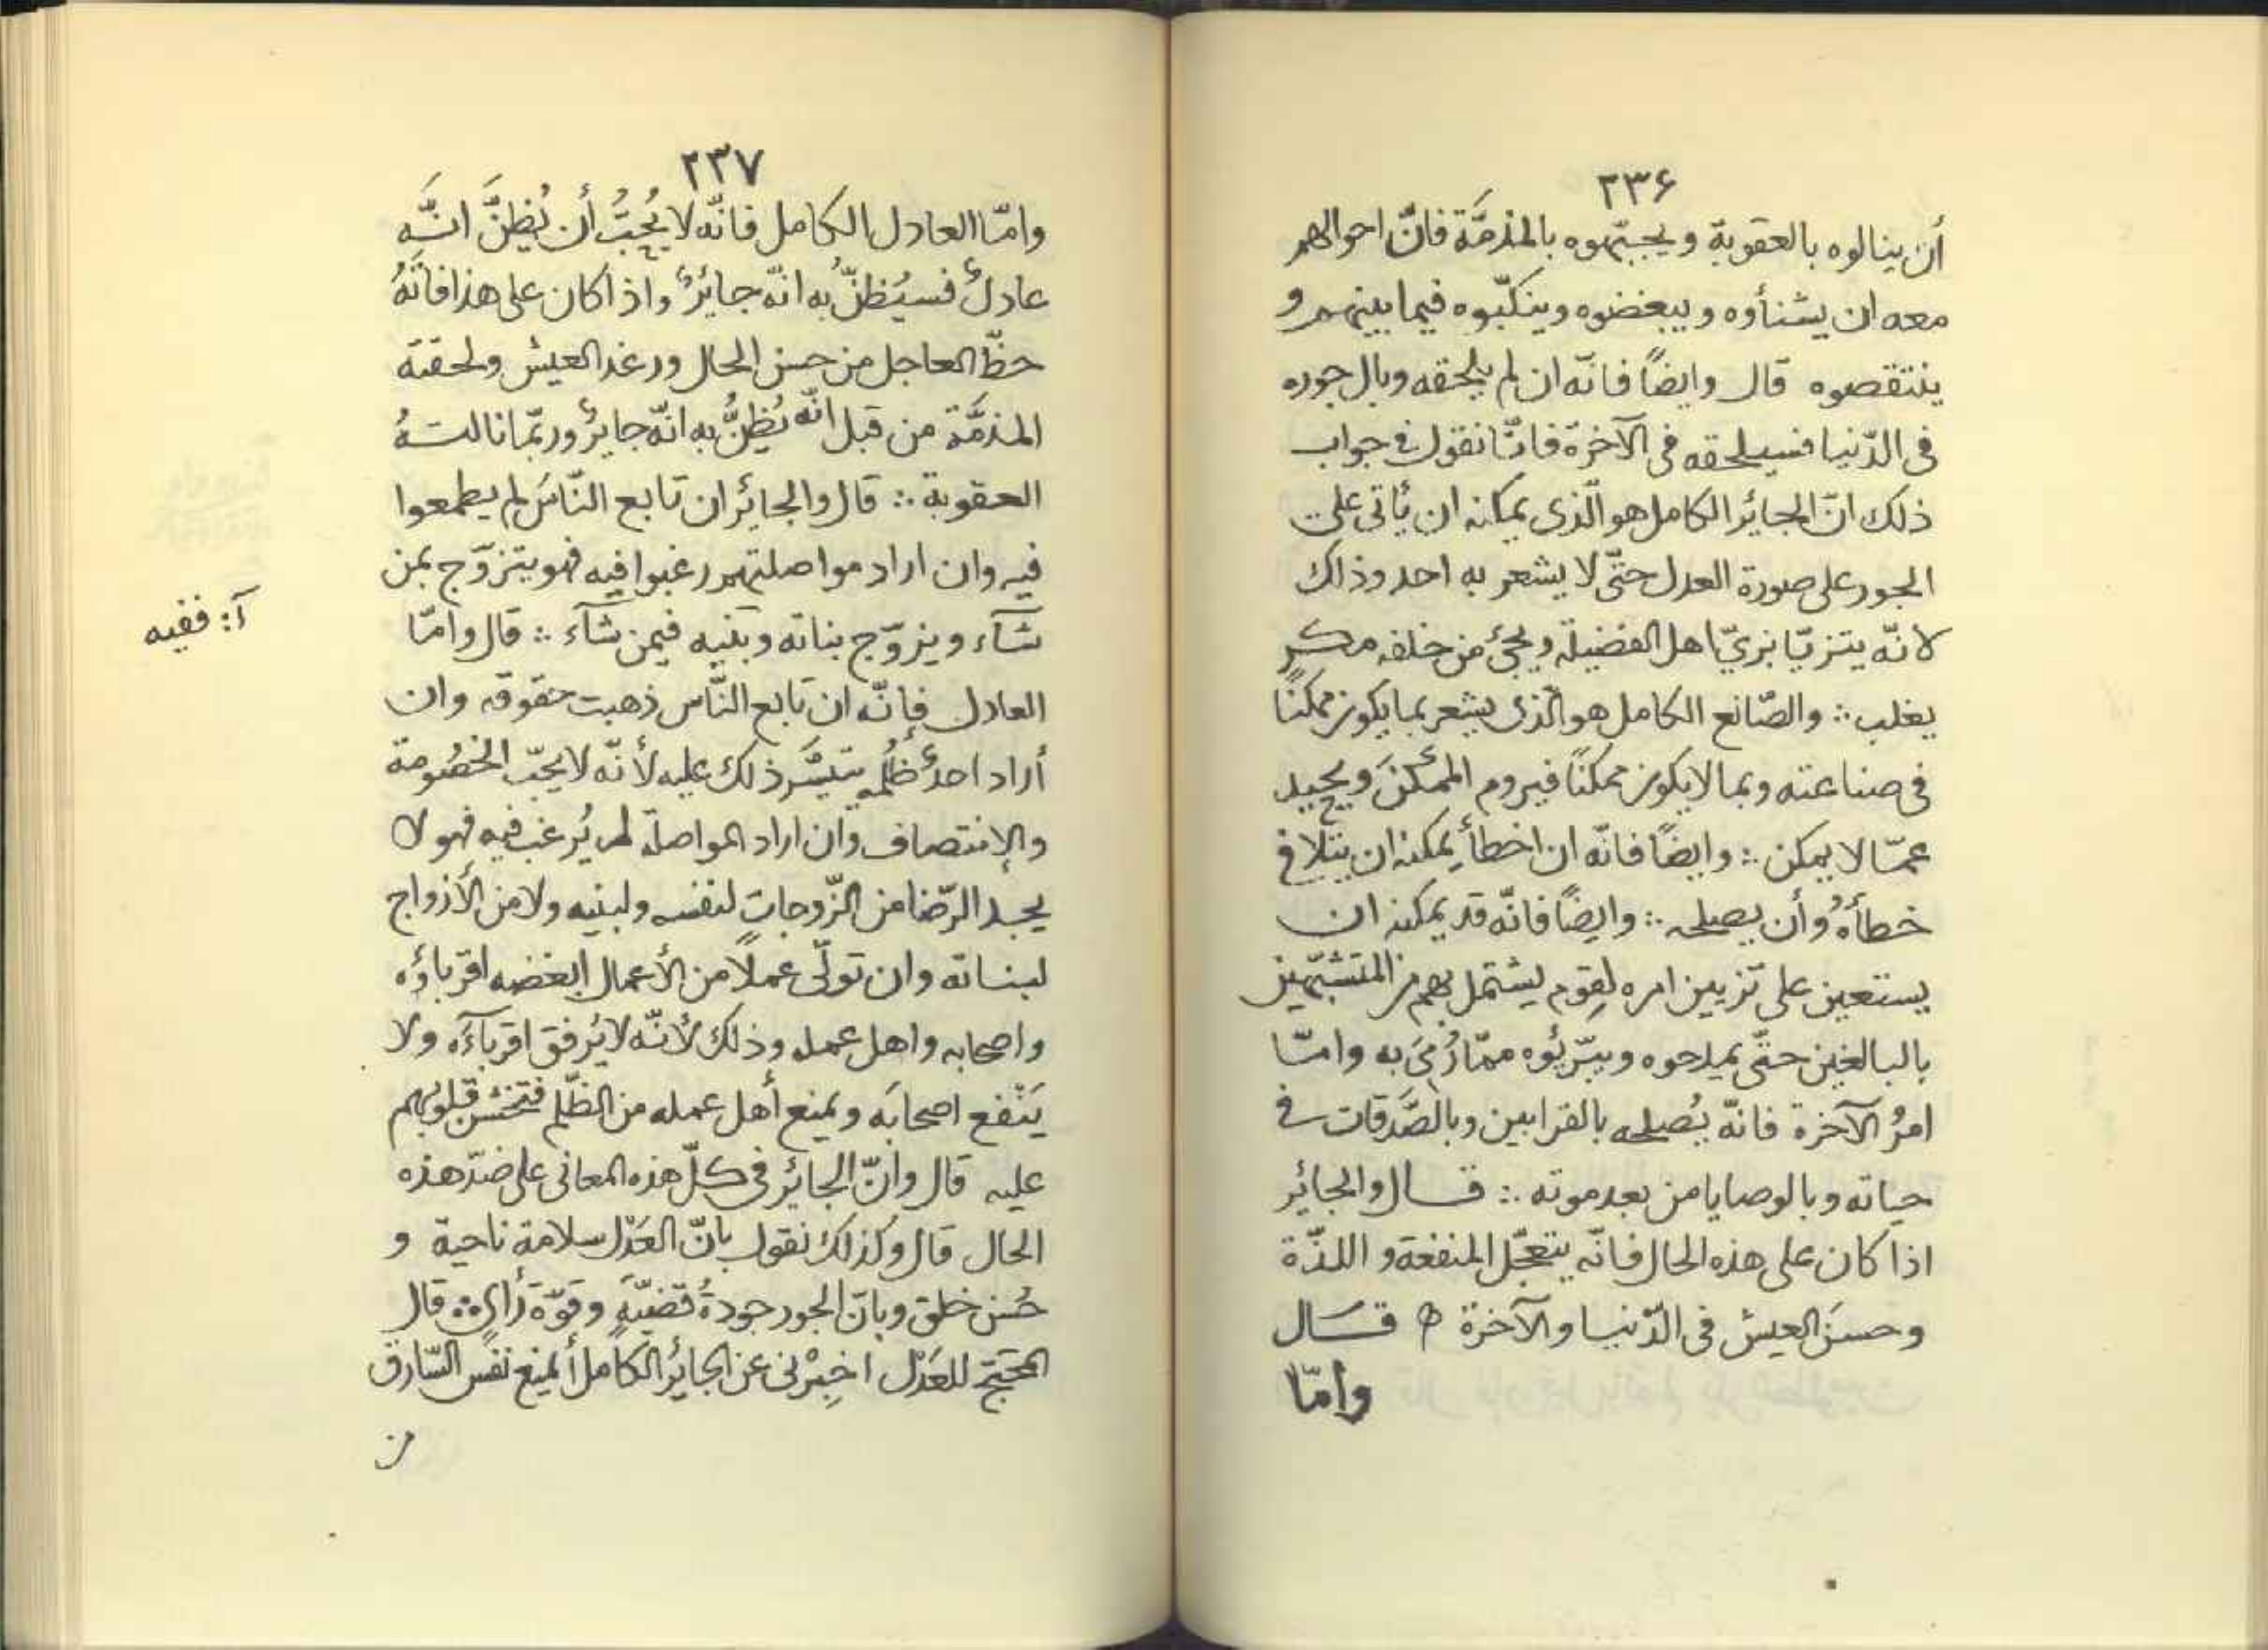 ٢٣۶
أن ينالوه بالعقوبة ويجبّهوه بالمذمَّة فانّ احوالهم
معه ان يشنأوه ويبغضوه وينكّبوه فيما بينهم و
ينتقصوه قال وايضًا فانّه ان لم يلحقه وبال جوره
فى الدّنيا فسيلحقه فى الآخرة فانّا نقول فى جواب
ذلك انّ الجائر الكامل هو الّذى يمكنه ان يأتى على
الجور على صورة العدل حتّى لا يشعر به احد وذاك
لانّه يتزيّا بزيّ اهل الفضيلة ويجئ من خلفه مكر
يغلب ∴ والصّانع الكامل هو الّذى يشعر بما يكون ممكنًا
فى صناعته وبما لا يكون ممكنًا فيروم الممكنَ ويحيد
عمّا لا يمكن ∴ وايضًا فانّه ان اخطأ يمكنه ان يتلافى
خطأهُ وأن يصلحه ∴ وايضًا فانّه قد يمكنه ان
يستعين على تزيين امره لِقوم يشتمل بهم من المتشبّهين
بالبالغين حتّى يمدحوه ويبرّئوه ممّا رُمىَ به وامّا
امرُ الآخرة فانّه يُصلحه بالقرابين وبالصَّدقات فى
حياته وبالوصايا من بعد موته ∴ قال والجائر
اذا كان على هذه الحال فانّه يتعجّل المنفعة و اللذّة
وحسنَ العيش فى الدّنيا والآخرة قال
وامّا
٢٣٧
وامّا العادل الكامل فانّه لا يُحِبُّ أن يُظنَّ انَّه
عادلٌ فسيُظنُّ به انّه جائرٌ واذا كان على هذا فاتَهُ
حظّ العاجل من حسن الحال ورغد العيش ولحقته
المذمَّة من قبل انّه يُظنُّ به انّه جايرٌ وربّما نالتهُ
العقوبة ∴ قال والجائر ان تابع النّاسَ لم يطمعوا
فيه وان اراد مواصلتهم رغبوا فيه فهو يتزوّج بمن
شآء ويزوّج بناته وبَنيه فيمن شآء ∴ قال وامّا
آ: ففيه
العادل فإنّه ان تابع النّاس ذهبت حقوقه وان
أراد احدٌ ظُلمه تيسَّر ذلك عليه لأنّه لا يحبّ الخصُومة
والإنتصاف وان اراد المواصلة لم يُرغب فيه فهو لا
يجد الرّضا من الزّوجات لنفسه ولبنيه ولا من الأزواج
لبناته وان تولّى عملًا من الأعمال ابغضه اقرباؤه
واصحابه واهل عمله وذلك لأنّه لا يُرفق اقربآءَه ولا
يَنْفع اصحابَه ويمنع أهل عمله من الظّلم فتخشن قلوبهم
عليه قال وانّ الجائر فى كلّ هذه المعانى على ضدّ هذه
الحال قال وكذلك نقول بانّ العَدْل سلامة ناحية و
حُسن خلق وبانّ الجور جودةُ قضيّةٍ وقوّة رَأىٍ ∴ قال
المحتجّ للعَدْل اخبِرْنى عن الجائر الكامل أيمنع نفس السّارق
من